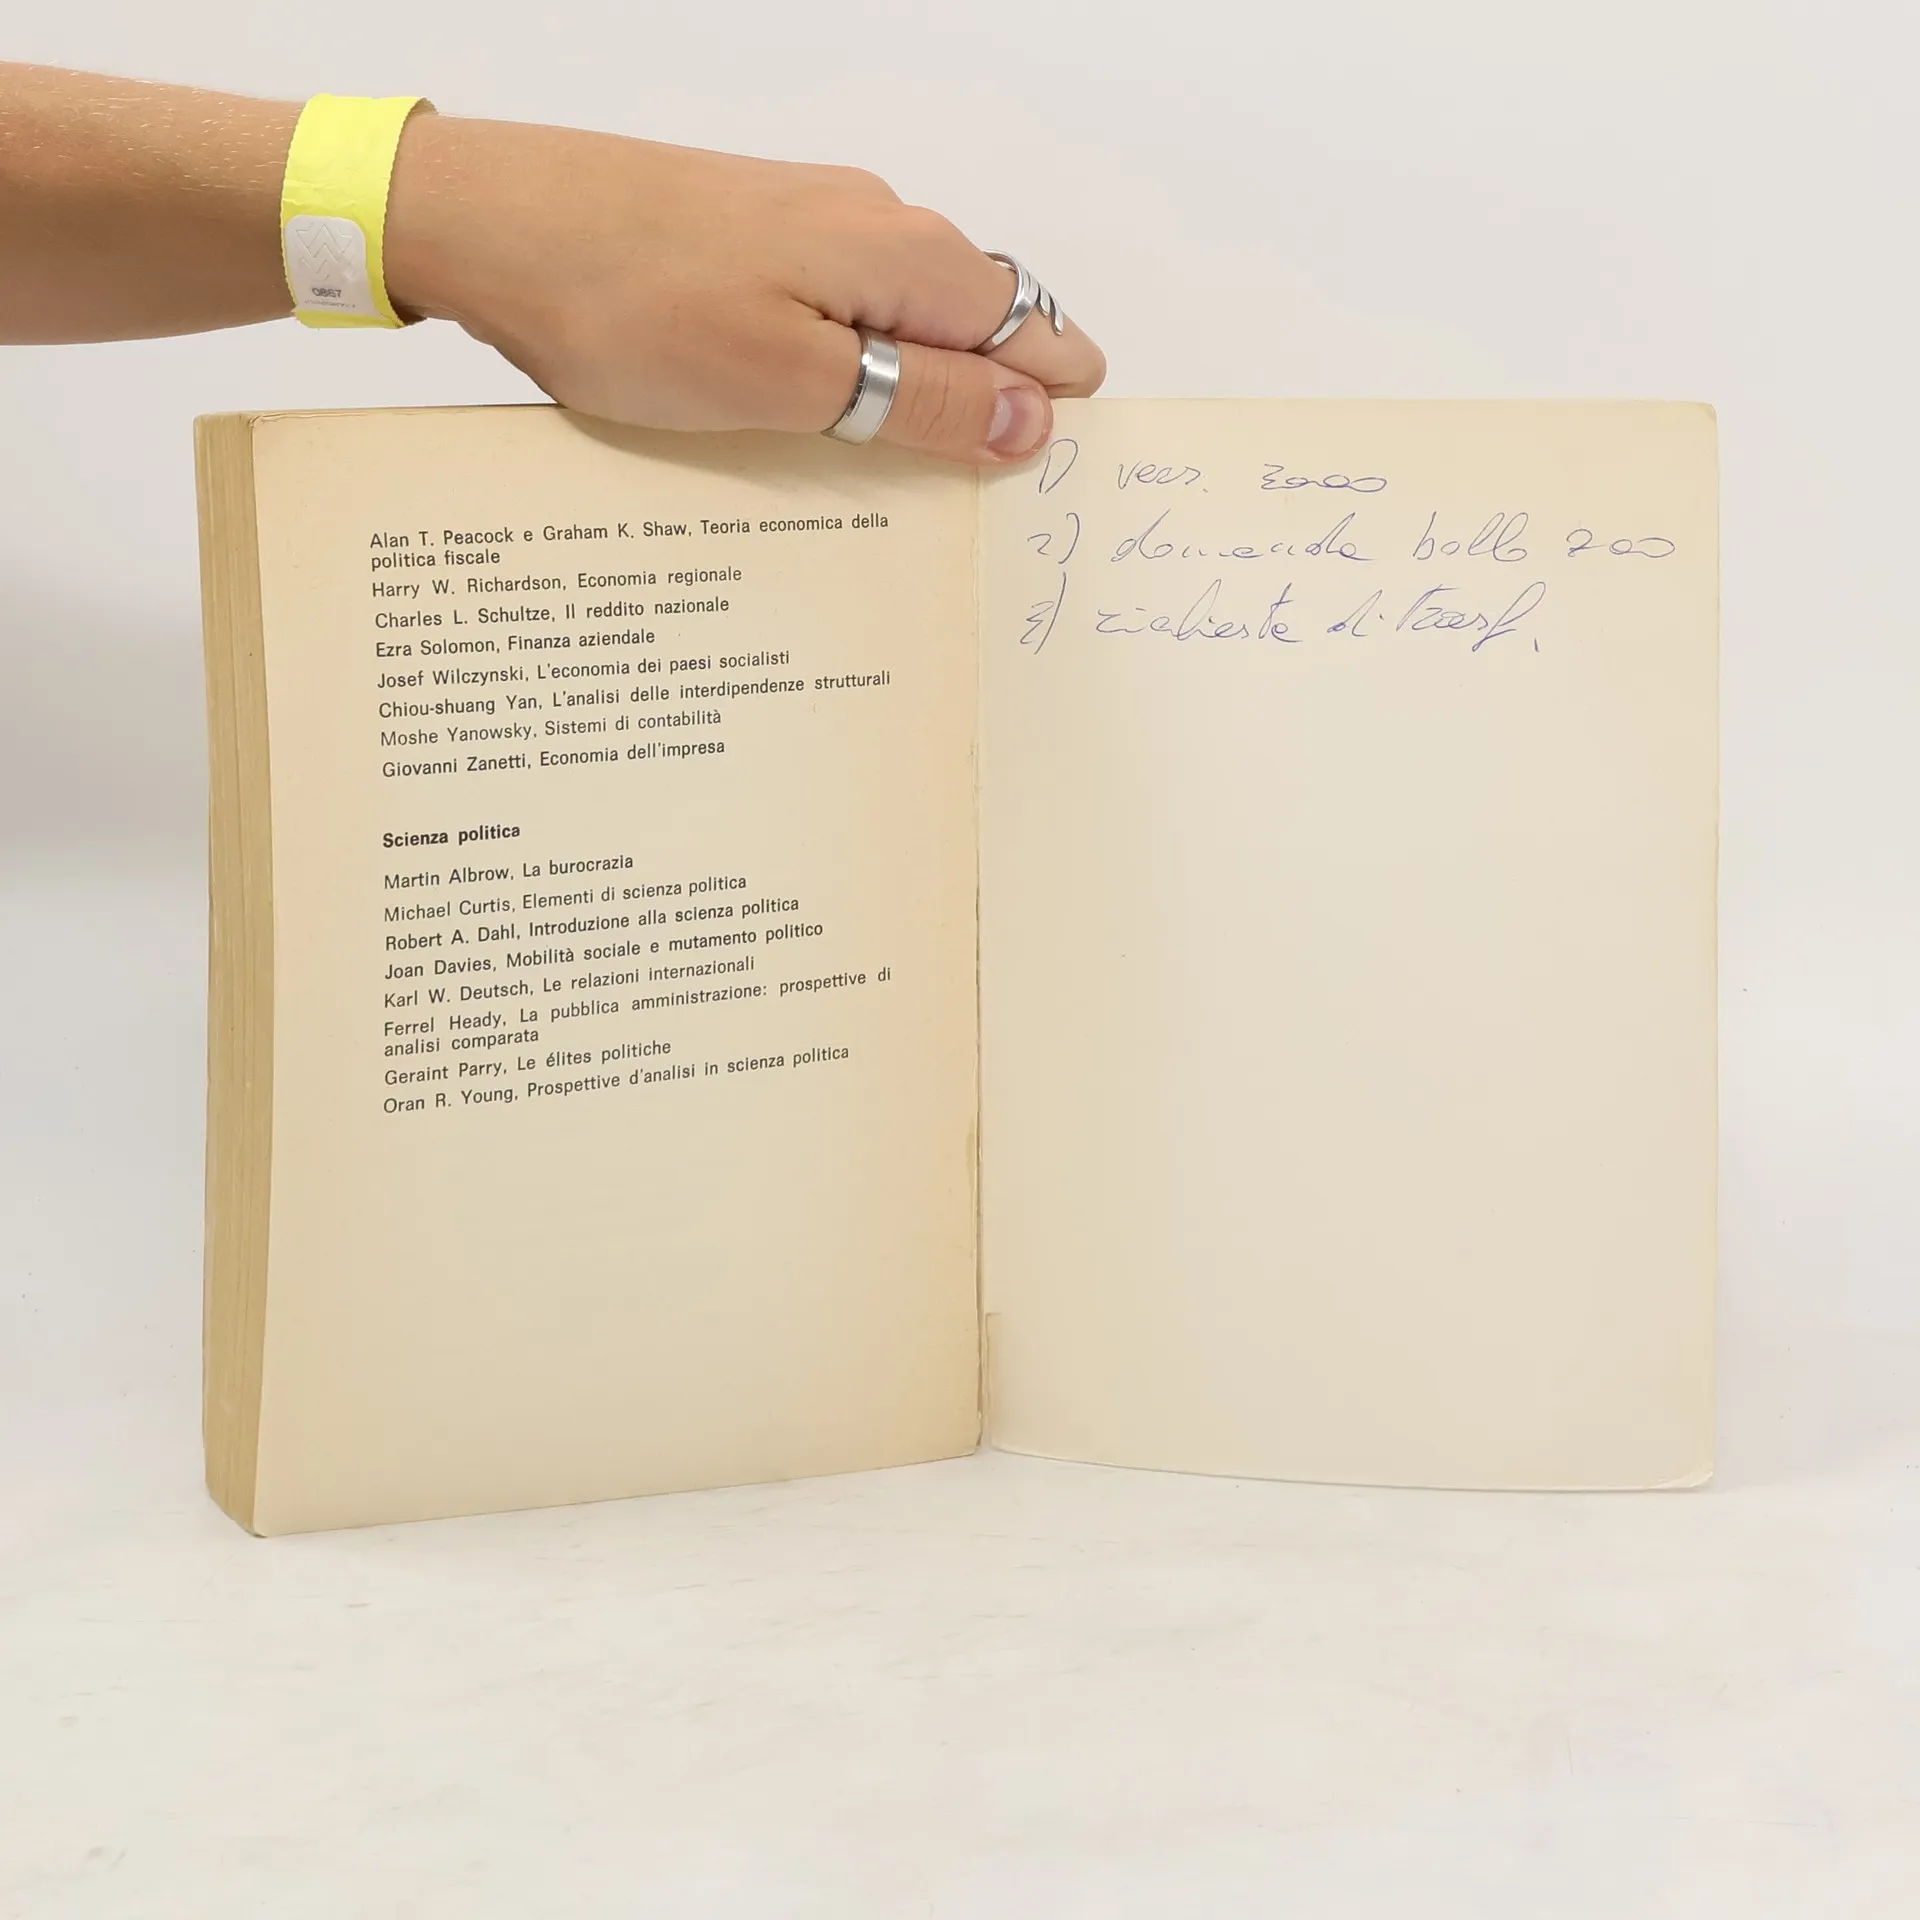 0867
Alan T. Peacock e Graham K. Shaw, Teoria economica della
politica fiscale
Harry W. Richardson, Economia regionale
Charles L. Schultze, Il reddito nazionale
Ezra Solomon, Finanza aziendale
Josef Wilczynski, L'economia dei paesi socialisti
Chiou-shuang Yan, L'analisi delle interdipendenze strutturali
Moshe Yanowsky, Sistemi di contabilità
Giovanni Zanetti, Economia dell'impresa
Scienza politica
Martin Albrow, La burocrazia
Michael Curtis, Elementi di scienza politica
Robert A. Dahl, Introduzione alla scienza politica
Joan Davies, Mobilità sociale e mutamento politico
Karl W. Deutsch, Le relazioni internazionali
Ferrel Heady, La pubblica amministrazione: prospettive di
analisi comparata
Geraint Parry, Le élites politiche
Oran R. Young, Prospettive d'analisi in scienza politica
1) vers.
2) domanda bollo 700
3) richiesta di trasf.